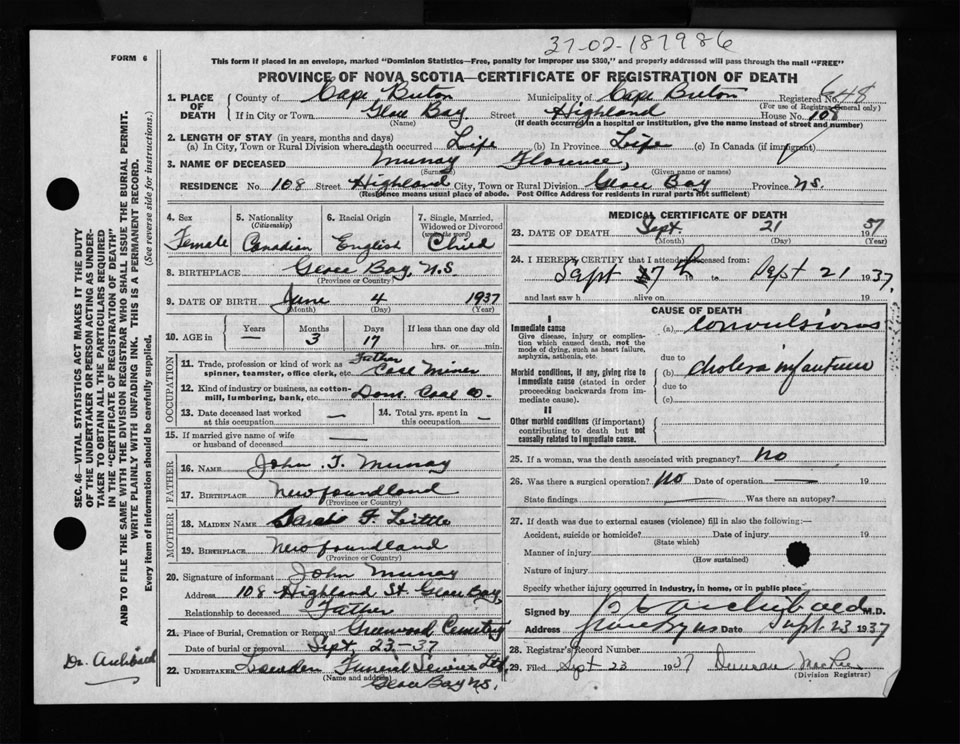 37-02-187986
FORM 6
This form if placed in an envelope, marked "Dominion Statistics—Free, penalty for improper use $300," and properly addressed will pass through the mail "FREE"
PROVINCE OF NOVA SCOTIA—CERTIFICATE OF REGISTRATION OF DEATH
1. PLACE OF DEATH County of Cape Breton Municipality of Cape Breton Registered No. 648
(For use of Registrar General only)
If in City or Town Glace Bay Street Highland House No. 108
(Name) (If death occurred in a hospital or institution, give the name instead of street and number)
2. LENGTH OF STAY (in years, months and days)
(a) In City, Town or Rural Division where death occurred Life (b) In Province Life (c) In Canada (if immigrant)
3. NAME OF DECEASED Murray Florence,
(Surname) (Given name or names)
RESIDENCE No. 108 Street Highland City, Town or Rural Division Glace Bay Province N.S.
(Residence means usual place of abode. Post Office Address for residents in rural parts not sufficient)
4. Sex 5. Nationality (Citizenship) 6. Racial Origin 7. Single, Married, Widowed or Divorced (write the word)
Female Canadian English Child
8. BIRTHPLACE Glace Bay, N.S.
(Province or Country)
9. DATE OF BIRTH June 4 1937
(Month) (Day) (Year)
10. AGE in Years Months Days If less than one day old
— 3 17 hrs. or min.
OCCUPATION
11. Trade, profession or kind of work as spinner, teamster, office clerk, etc. Father Coal Miner
12. Kind of industry or business, as cotton-mill, lumbering, bank, etc. Dom. Coal Co.
13. Date deceased last worked at this occupation — 14. Total yrs. spent in this occupation —
15. If married give name of wife or husband of deceased —
FATHER
16. NAME John T. Murray
17. BIRTHPLACE Newfoundland
MOTHER
18. MAIDEN NAME Sarah F. Little
19. BIRTHPLACE Newfoundland
(Province or Country)
20. Signature of informant John Murray
Address 108 Highland St. Glace Bay,
Relationship to deceased Father
21. Place of Burial, Cremation or Removal Greenwood Cemetery
Date of burial or removal Sept. 23. 37
22. UNDERTAKER Funeral Service Ltd
(Name and address)
Glace Bay N.S.
MEDICAL CERTIFICATE OF DEATH
23. DATE OF DEATH Sept. 21 1937
(Month) (Day) (Year)
24. I HEREBY CERTIFY that I attended deceased from:
Sept 7th 19 to Sept 21 1937.
and last saw h alive on 19
CAUSE OF DEATH
I
Immediate cause (a) convulsions
Give disease, injury or complication which caused death, not the mode of dying, such as heart failure, asphyxia, asthenia, etc.
due to
Morbid conditions, if any, giving rise to immediate cause (stated in order proceeding backwards from immediate cause). (b) cholera infantum
due to
(c)
II
Other morbid conditions (if important) contributing to death but not causally related to immediate cause.
25. If a woman, was the death associated with pregnancy? No
26. Was there a surgical operation? No Date of operation — 19
State findings Was there an autopsy?
27. If death was due to external causes (violence) fill in also the following:—
Accident, suicide or homicide? Date of injury 19
(State which)
Manner of injury
(How sustained)
Nature of injury
Specify whether injury occurred in industry, in home, or in public place.
Signed by Archibald M.D.
Address Glace Bay NS Date Sept. 23 1937
28. Registrar's Record Number
29. Filed Sept 23 1937 Duncan MacRae
(Division Registrar)
SEC. 46—VITAL STATISTICS ACT MAKES IT THE DUTY
OF THE UNDERTAKER OR PERSON ACTING AS UNDER-
TAKER TO OBTAIN ALL THE PARTICULARS REQUIRED
IN THE "CERTIFICATE OF REGISTRATION OF DEATH"
AND TO FILE THE SAME WITH THE DIVISION REGISTRAR WHO SHALL ISSUE THE BURIAL PERMIT.
WRITE PLAINLY WITH UNFADING INK. THIS IS A PERMANENT RECORD.
Every item of information should be carefully supplied. (See reverse side for instructions.)
Dr. Archibald